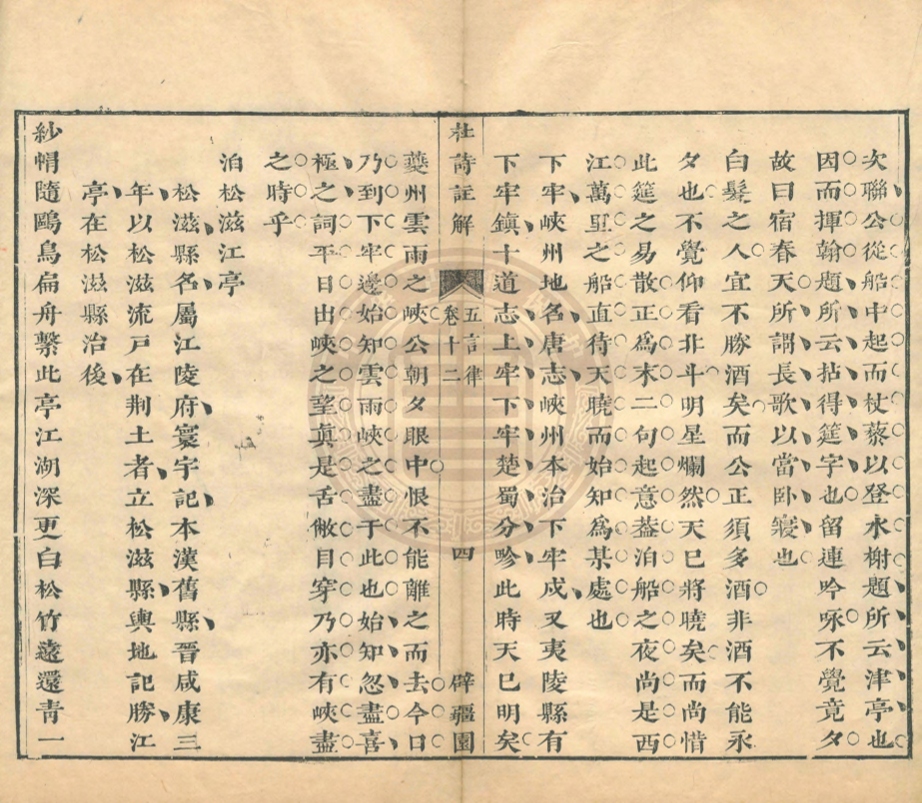 次聯公從船中起而杖藜以登水榭題所云津亭也
因而揮翰題所云拈得筵字也留連吟咏不覺竟夕
故曰宿春天所謂長歌以當卧寢也
白髮之人宜不勝酒矣而公正須多酒非酒不能永
夕也不覺仰看北斗明星爛然天已將曉矣而尚惜
此筵之易散正為末二句起意葢泊船之夜尚是西
江萬里之船直待天曉而始知為某處也
下牢峽州地名唐志峽州本治下牢戍又夷陵縣有
下牢鎮十道志上牢下牢楚蜀分畛此時天已明矣
杜詩註解 五言律 卷十二 四 辟疆園
夔州雲雨之峽公朝夕眼中恨不能離之而去今日
乃到下牢邊始知雲雨峽之盡于此也始知忽盡喜
極之詞平日由峽之望真是舌敝目穿乃亦有峽盡
之時乎
泊松滋江亭
松滋縣名屬江陵府寰宇記本漢舊縣晉咸康三
年以松滋流戸在荆土者立松滋縣輿地記勝江
亭在松滋縣治後
紗帽隨鷗鳥扁舟繫此亭江湖深更白松竹遠還青一